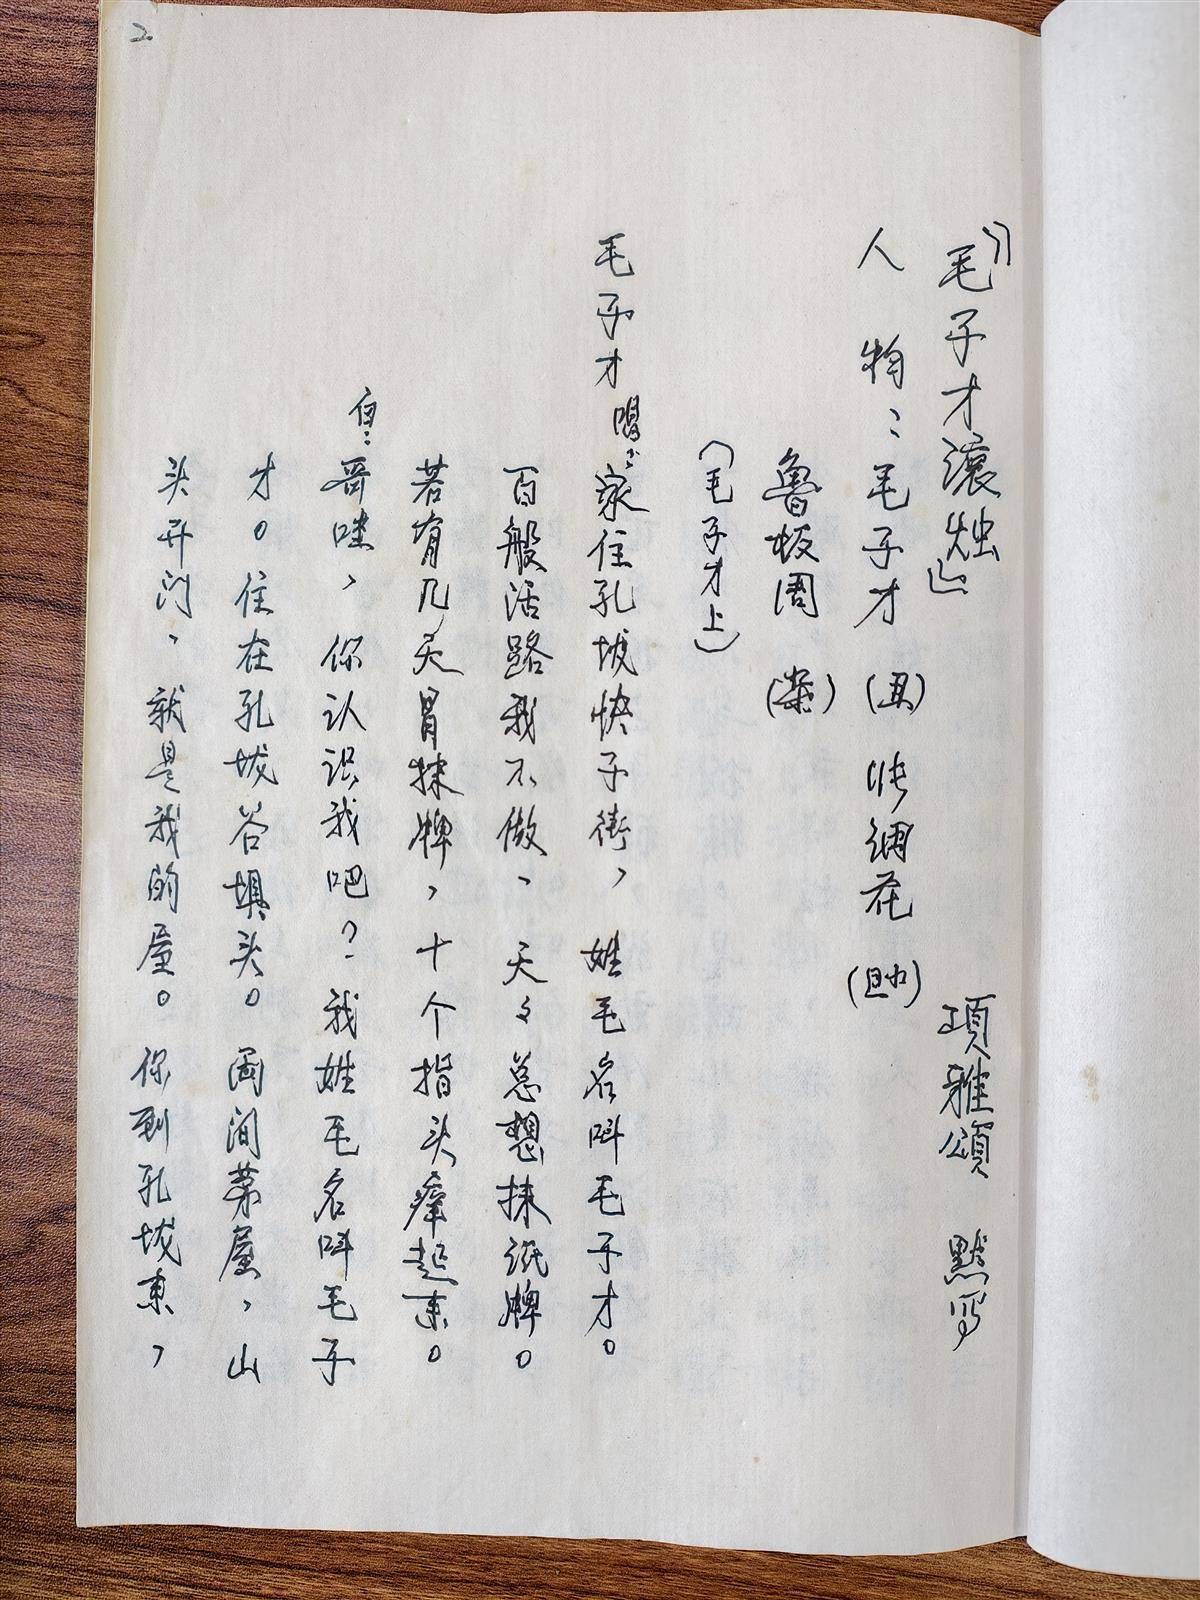 2
《毛子才滚烛》 項雅頌 默写
人物：毛子才（丑） 张绸花（旦）
魯板周（杂）
（毛子才上）
毛子才 唱：家住孔城快子街，姓毛名叫毛子才。
百般活路我不做，天々总想抹纸牌。
若有几天冒抹牌，十个指头痒起来。
白：哥哇，你认识我吧？我姓毛名叫毛子
才。住在孔城谷埧头。两间茅屋，山
头开门，就是我的屋。你到孔城东，